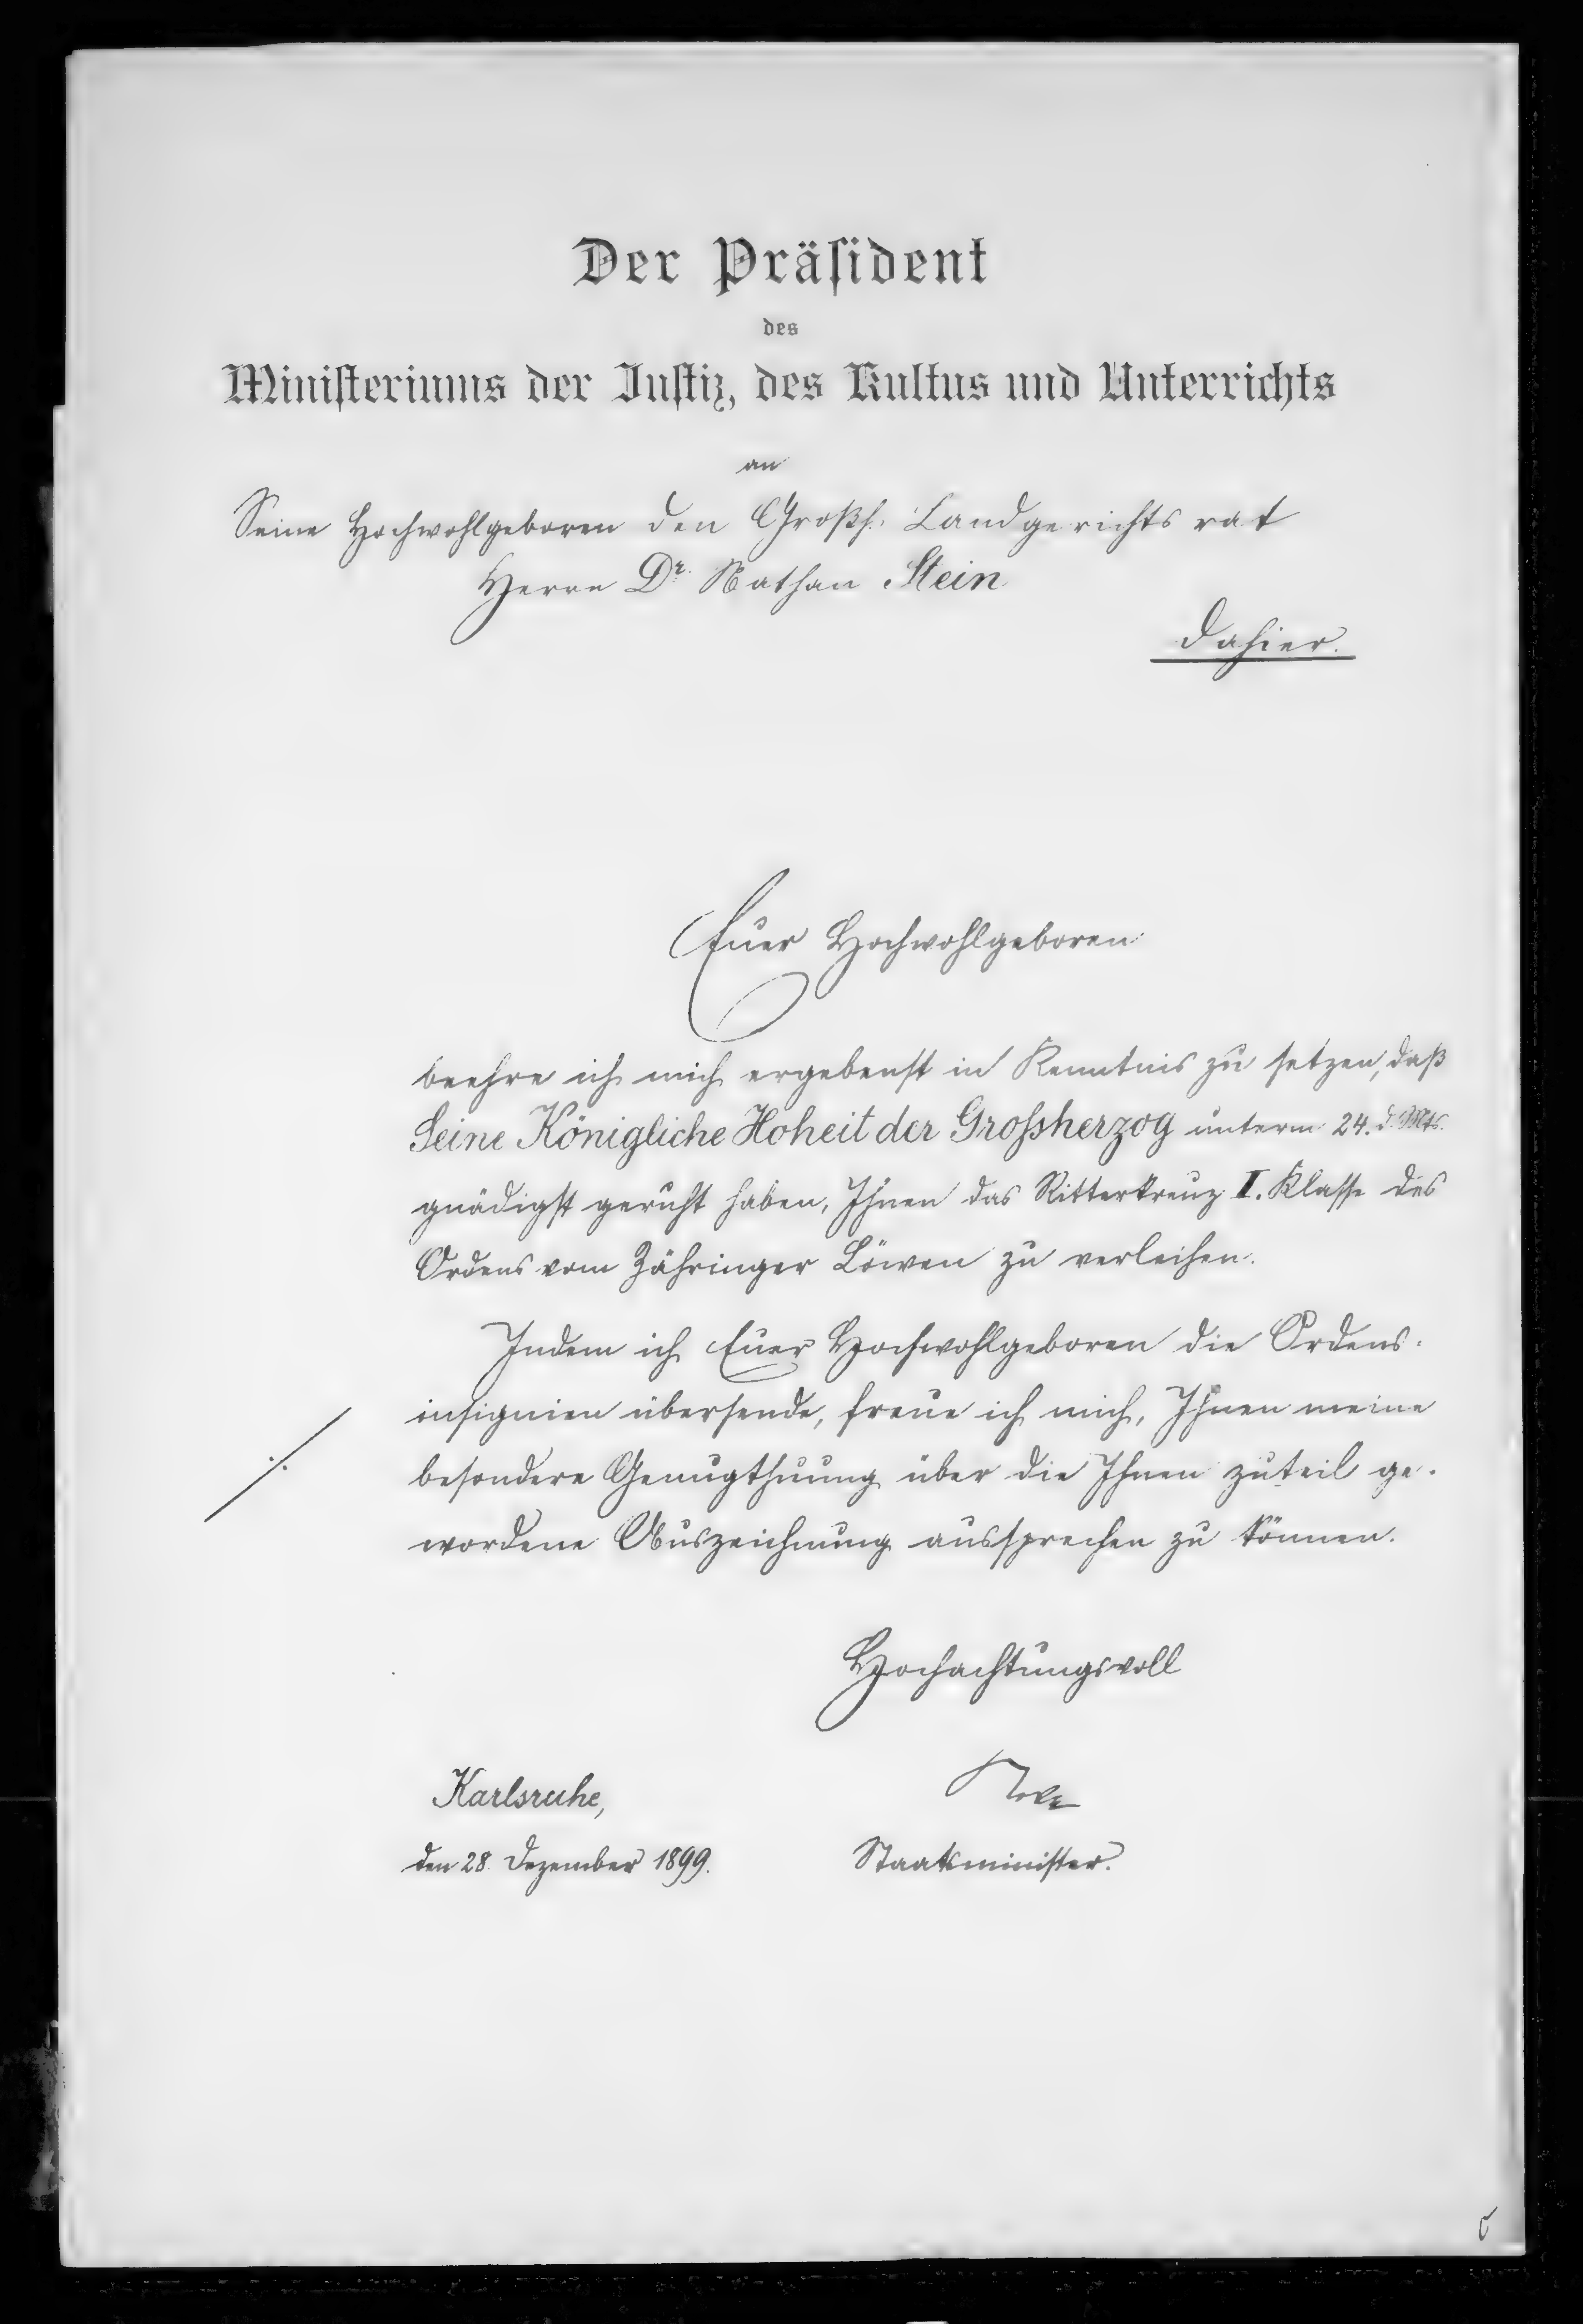 Der Präsident
des
Ministeriums der Justiz, des Kultus und Unterrichts
an
Seine Hochwohlgeboren den Großh. Landgerichtsrat
Herrn Dr. Nathan Stein
dahier.
Euer Hochwohlgeboren
beehre ich mich ergebenst in Kenntnis zu setzen, daß
Seine Königliche Hoheit der Grossherzog unterm 24. d. Mts.
gnädigst geruht haben, Ihnen das Ritterkreuz II. Klasse des
Ordens vom Zähringer Löwen zu verleihen.
Indem ich Euer Hochwohlgeboren die Ordens-
insignien übersende, freue ich mich, Ihnen meine
besondere Genugthuung über die Ihnen zuteil ge-
wordene Auszeichnung aussprechen zu können.
Hochachtungsvoll
Karlsruhe,
den 28. Dezember 1899.
Nokk
Staatsminister.